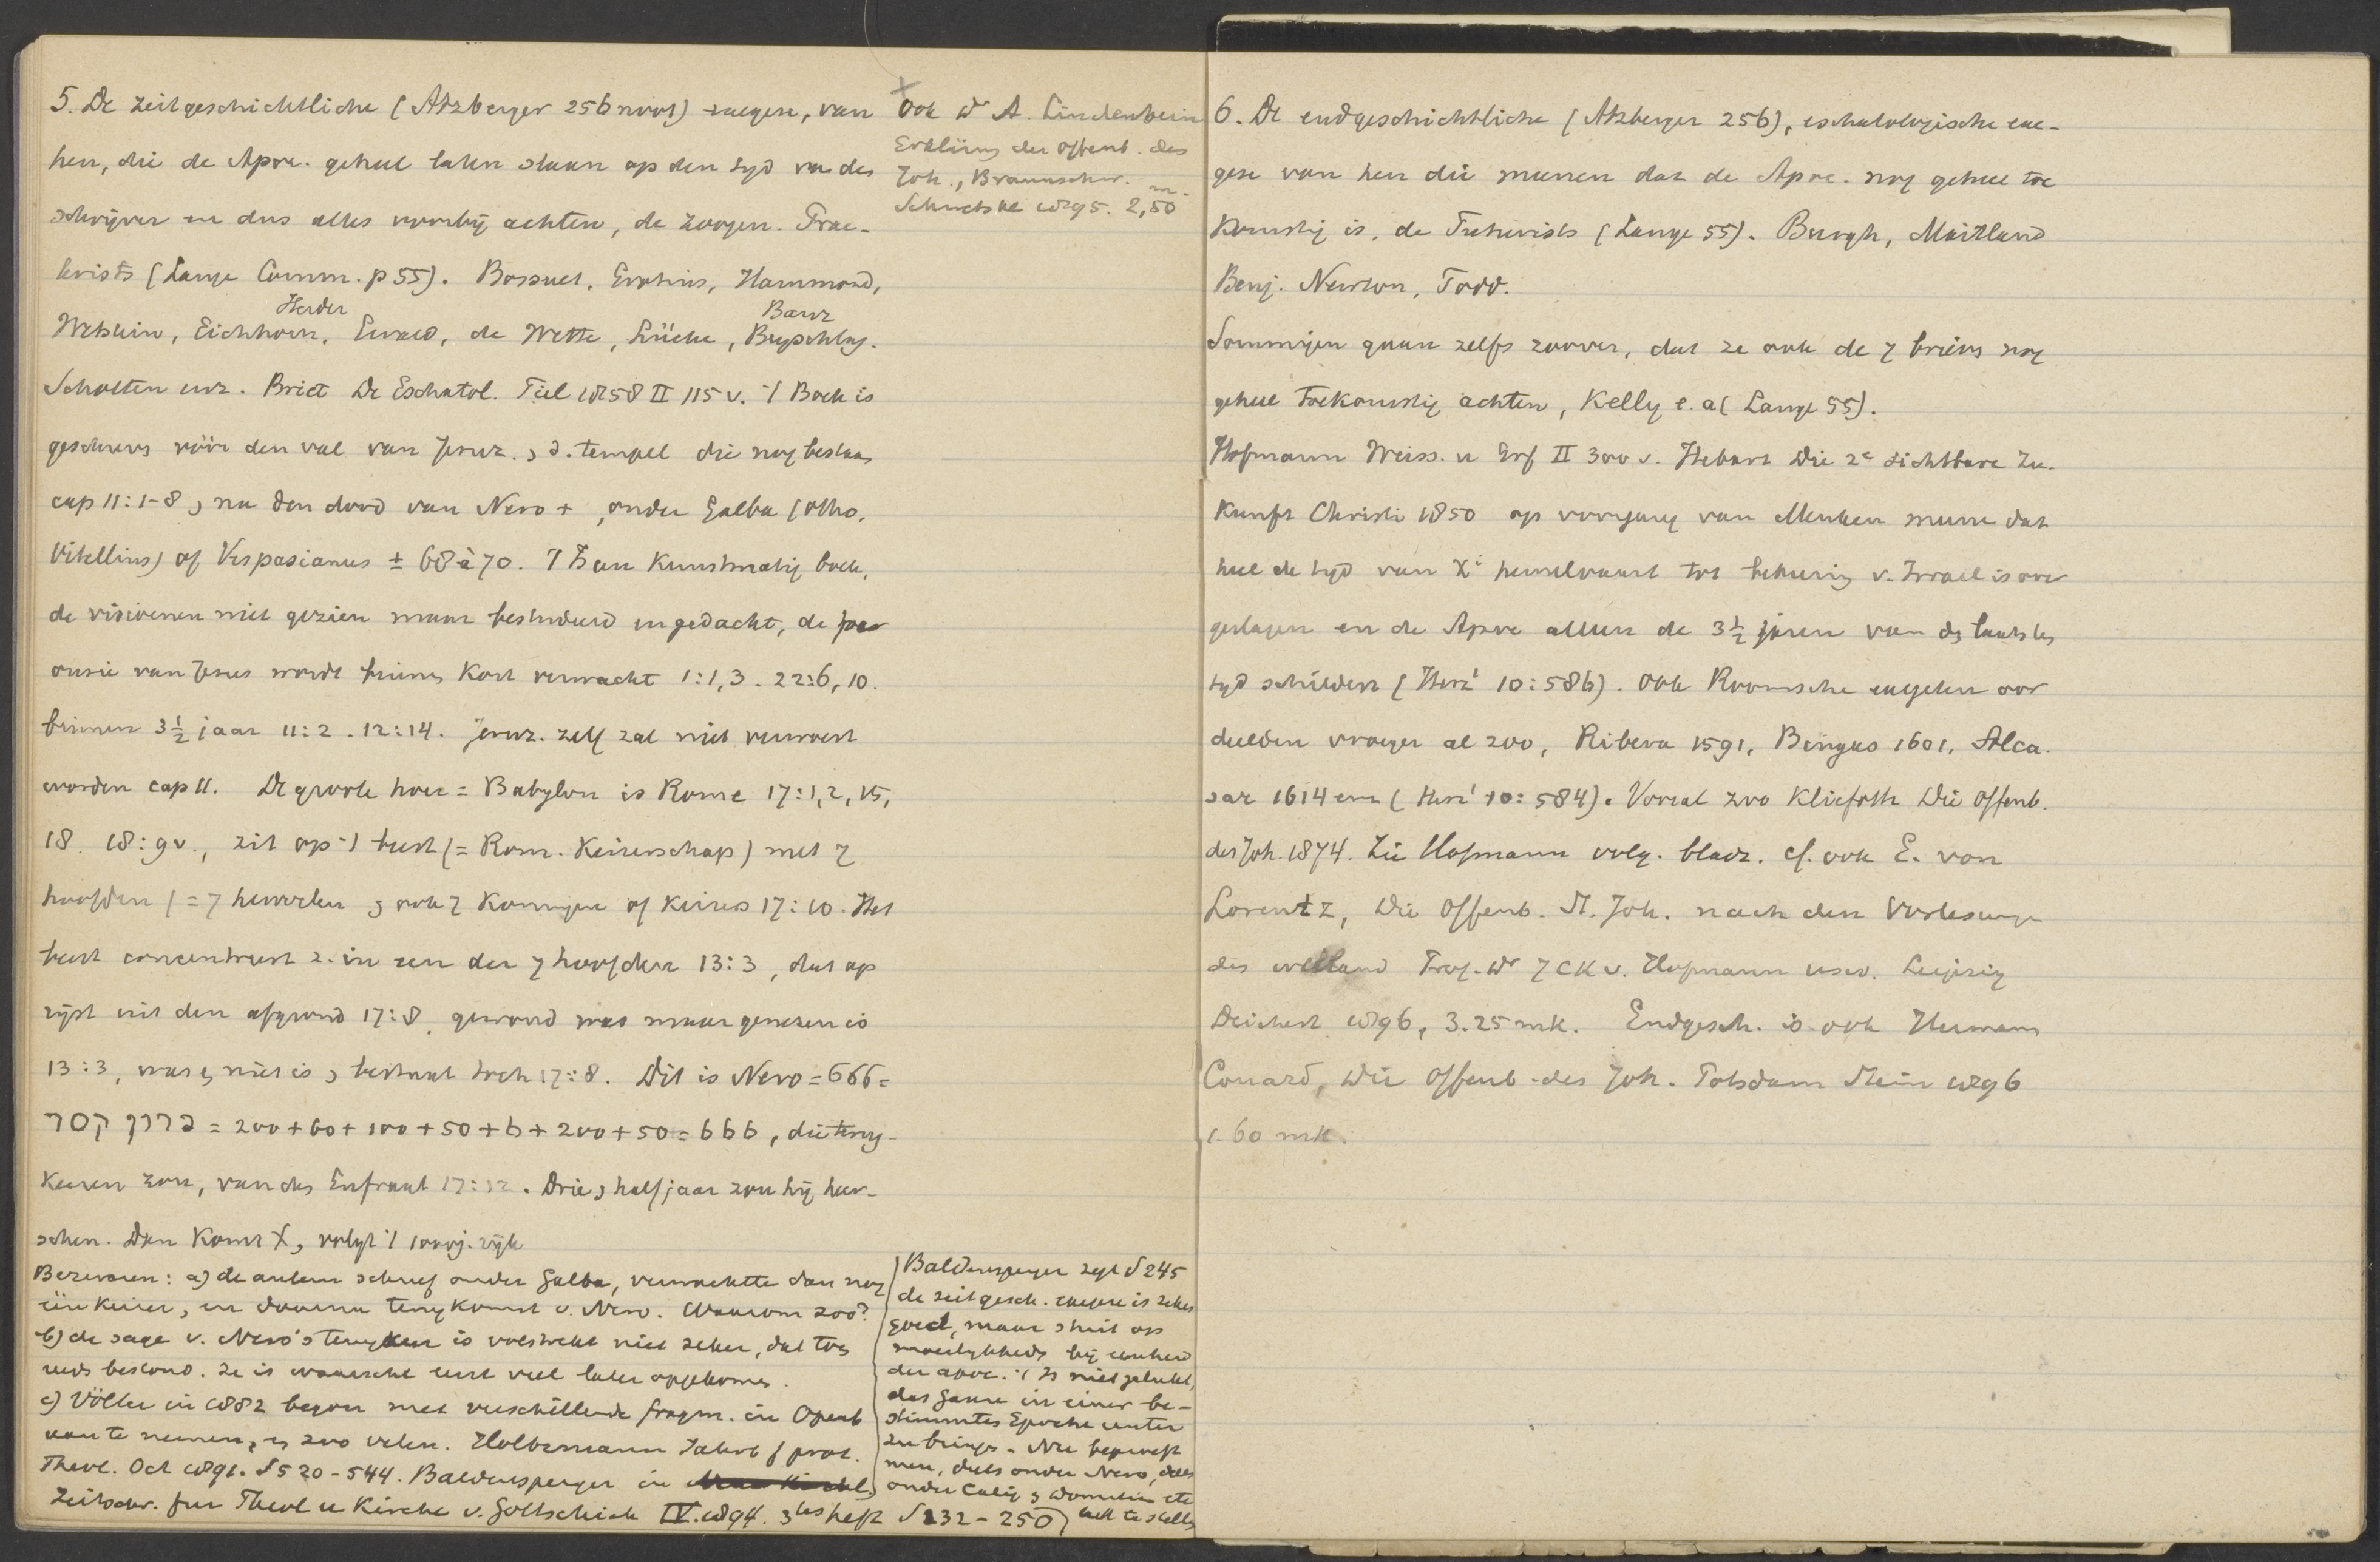 5. De zeitgeschichtliche (Atzberger 256 noot) exegese, van
hen, die de Apoc. geheel laten slaan op den tyd van den
schrijver en dus alles voorbij achten, de zoogen. Prae-
terists (Lange Comm. p 55). Bossuet, Grotius, Hammond,
Herder Baur
Wetstein, Eichhorn, Ewald, de Wette, Lücke, Beyschlag.
Scholten enz. Briet De Eschatol. Tiel 1858 II 115 v. 't Boek is
geschreven vóór den val van Jeruz., d. tempel die nog bestaat
cap 11:1-8, na den dood van Nero +, onder Galba (Otho,
Vitellius) of Vespasianus ± 68 à 70. 't Is een kunstmatig boek,
de visioenen niet gezien maar bestudeerd en gedacht, de par
ousie van Jesus wordt binnen kort verwacht 1:1,3. 22:6,10.
binnen 3½ jaar 11:2. 12:14. Jeruz. zelf zal niet verwoest
worden cap 11. De groote hoer = Babylon is Rome 17:1,2,15,
18. 18:9 v., zit op 't beest (= Rom. Keizerschap) met 7
hoofden (= 7 heuvelen, ook 7 koningen of keizers 17:10. Het
beest concentreert z. in een der 7 hoofden 13:3, dat op
rijst uit den afgrond 17:8, gewond was maar genezen is
13:3, was, niet is, bestaat toch 17:8. Dit is Nero = 666 =
נרון קסר = 200+60+100+50+6+200+50 = 666, die terug-
keeren zou, van den Eufraat 17:12. Drie, half jaar zou hij heer-
schen. Dan komt X, volgt 't 1000j. rijk
Bezwaren: a) de auteur schreef onder Galba, verwachtte dan nog
één keizer, en daarna terugkomst v. Nero. Waarom zoo?
b) de sage v. Nero's terugkeer is volstrekt niet zeker, dat toen
reeds bestond. Ze is waarsch. eerst veel later opgekomen.
c) Völter in 1882 begon met verschillende fragm. in Openb
aan te nemen, en zoo velen. Holtzmann Jahrb f prot.
Theol. Oct 1891. S 520-544. Baldensperger in
Zeitschr. fur Theol u Kirche v. Gottschick IV. 1894. 3tes heft S 232-250
X Ook Dr A. Lindenbein
Erklärung der Offenb. des
Joh., Braunschw.
Schwetske 1895. 2,50 m.
Baldensperger zegt S 245
de zeitgesch. exegese is zeker
goed, maar stuit op
moeilijkheden bij eenheid
der apoc. 't Is niet gelukt,
das Ganze in einer be-
stimmten Epoche unter
zu bringen. Nu beproeft
men, deels onder Nero, deels
onder Calig, Domitian etc
het te stellen
6. De endgeschichtliche (Atzberger 256), eschatologische exe-
gese van hen die meenen dat de Apoc. nog geheel toe
komstig is, de Futurists (Lange 55). Burgh, Maitland
Benj. Newton, Todd.
Sommigen gaan zelfs zoover, dat ze ook de 7 brieven nog
geheel toekomstig achten, Kelly e. a (Lange 55).
Hofmann Weiss. u Erf II 300 v. Hebart Die 2e sichtbare Zu-
kunft Christi 1850 op voorgang van Menken meene dat
heel de tyd van Xi hemelvaart tot bekeering v. Israel is over
geslagen en de Apoc alleen de 3½ jaren van den laatsten
tyd schildert (Herz¹ 10:586). Ook Roomsche exegeten oor
deelden vroeger al zoo, Ribera 1591, Bongus 1601, Alca-
sar 1614 enz (Herz¹ 10:584). Vooral zoo Kliefoth Die Offenb.
des Joh. 1874. Zie Hofmann volg. bladz. cf. ook E. von
Lorentz, Die Offenb. St. Joh. nach den Vorlesungen
des weiland Prof. Dr J CK v. Hofmann usw. Leipzig
Deichert 1896, 3.25 mk. Endgesch. is ook Hermann
Conard, Die Offenb. des Joh. Potsdam Stein 1896
1.60 mk.